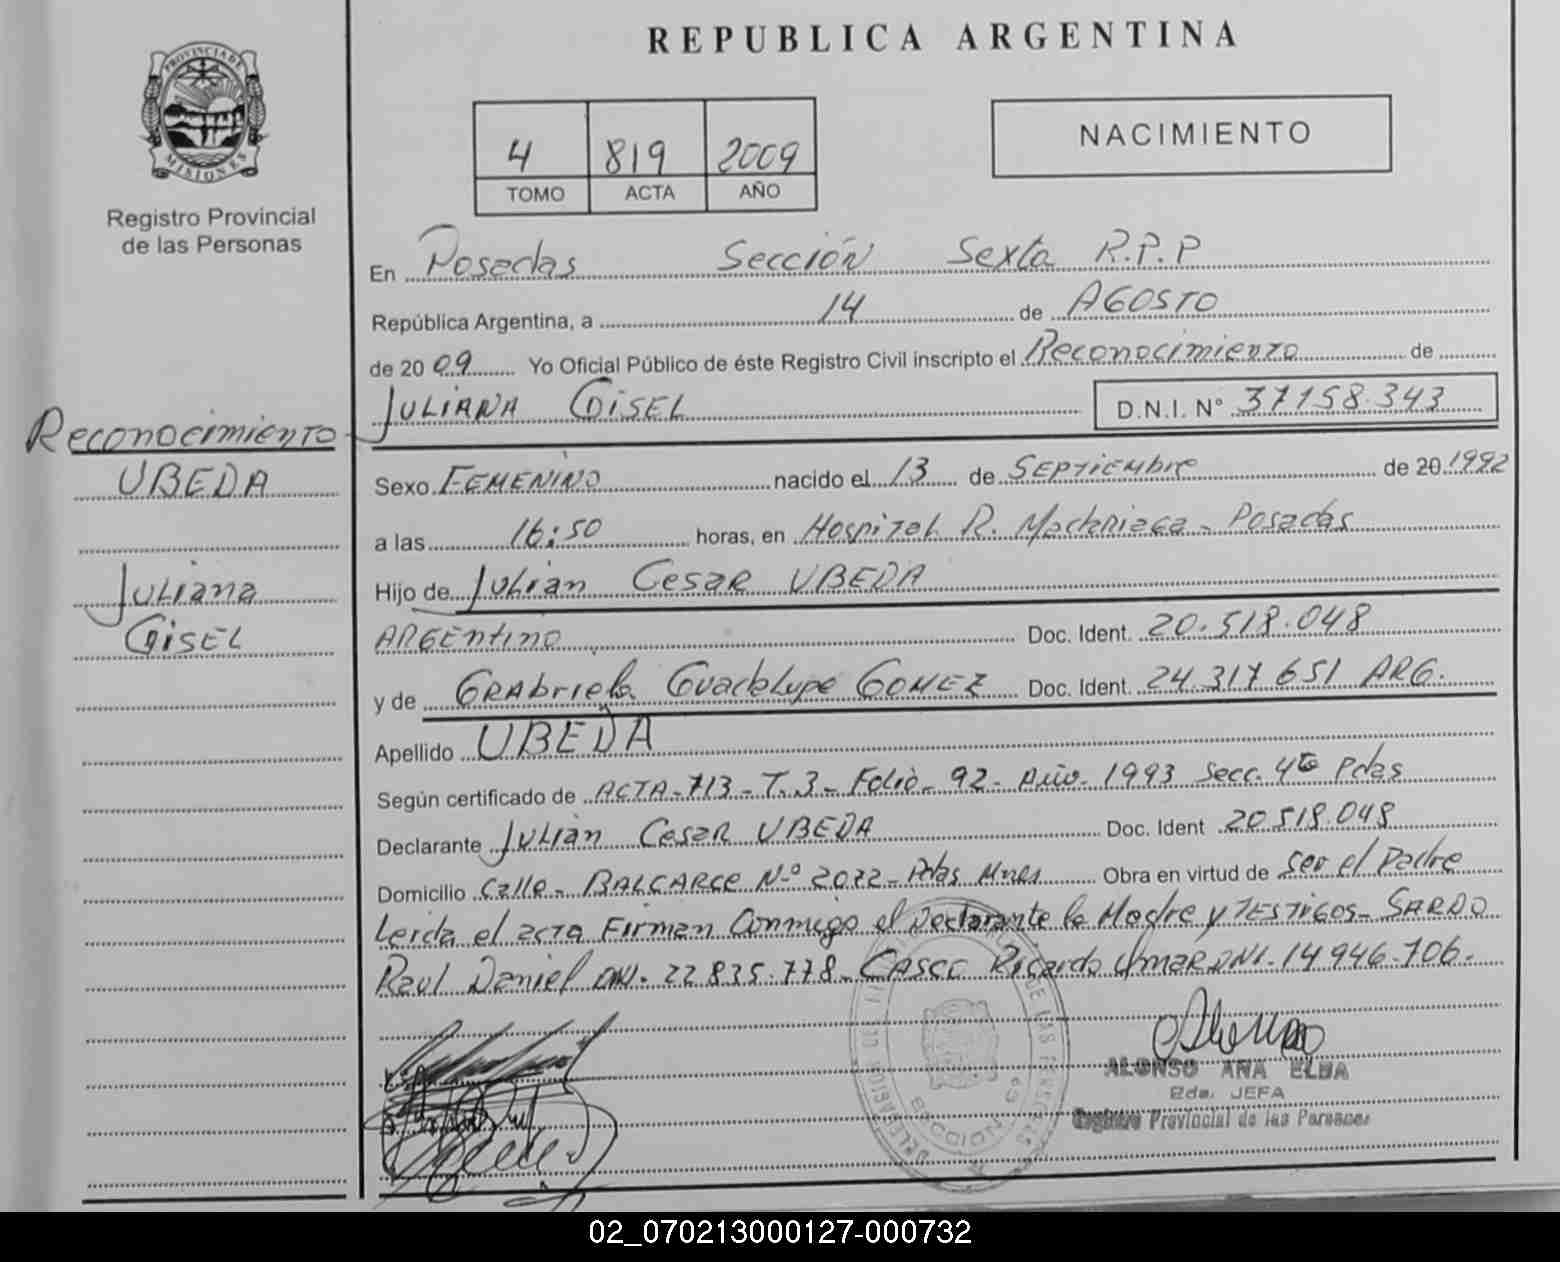 PROVINCIA DE
MISIONES
Registro Provincial
de las Personas
REPUBLICA ARGENTINA
4 819 2009
TOMO ACTA AÑO
NACIMIENTO
En Posadas Sección Sexta R.P.P
República Argentina, a 14 de AGOSTO
de 2009 Yo Oficial Público de éste Registro Civil inscripto el Reconocimiento de
JULIANA GISEL D.N.I. N° 37158.343
Reconocimiento
UBEDA
Juliana
GISEL
Sexo FEMENINO nacido el 13 de SEPTIEMBRE de 20 1992
a las 16:50 horas, en Hospital R. Madariaga - Posadas
Hijo de Julian Cesar UBEDA
ARGENTINO Doc. Ident. 20.518.048
y de GRAbriela Guadalupe GOMEZ Doc. Ident. 24.317.651 ARG.
Apellido UBEDA
Según certificado de ACTA-713-T.3-Folio-92-Año-1993 Secc. 4ta Pdas
Declarante Julian Cesar UBEDA Doc. Ident 20 518.048
Domicilio Calle - BALCARCE N-° 2072 - Pdas Mnes Obra en virtud de Ser el Padre
Leida el acta Firman Conmigo el Declarante la Madre y TESTIGOS - SARDO
Raul Daniel DNI. 22.835.778 - Casco Ricardo Omar DNI. 14.946.706.
ALONSO ANA ELBA
2da. JEFA
Registro Provincial de las Personas
02_070213000127-000732